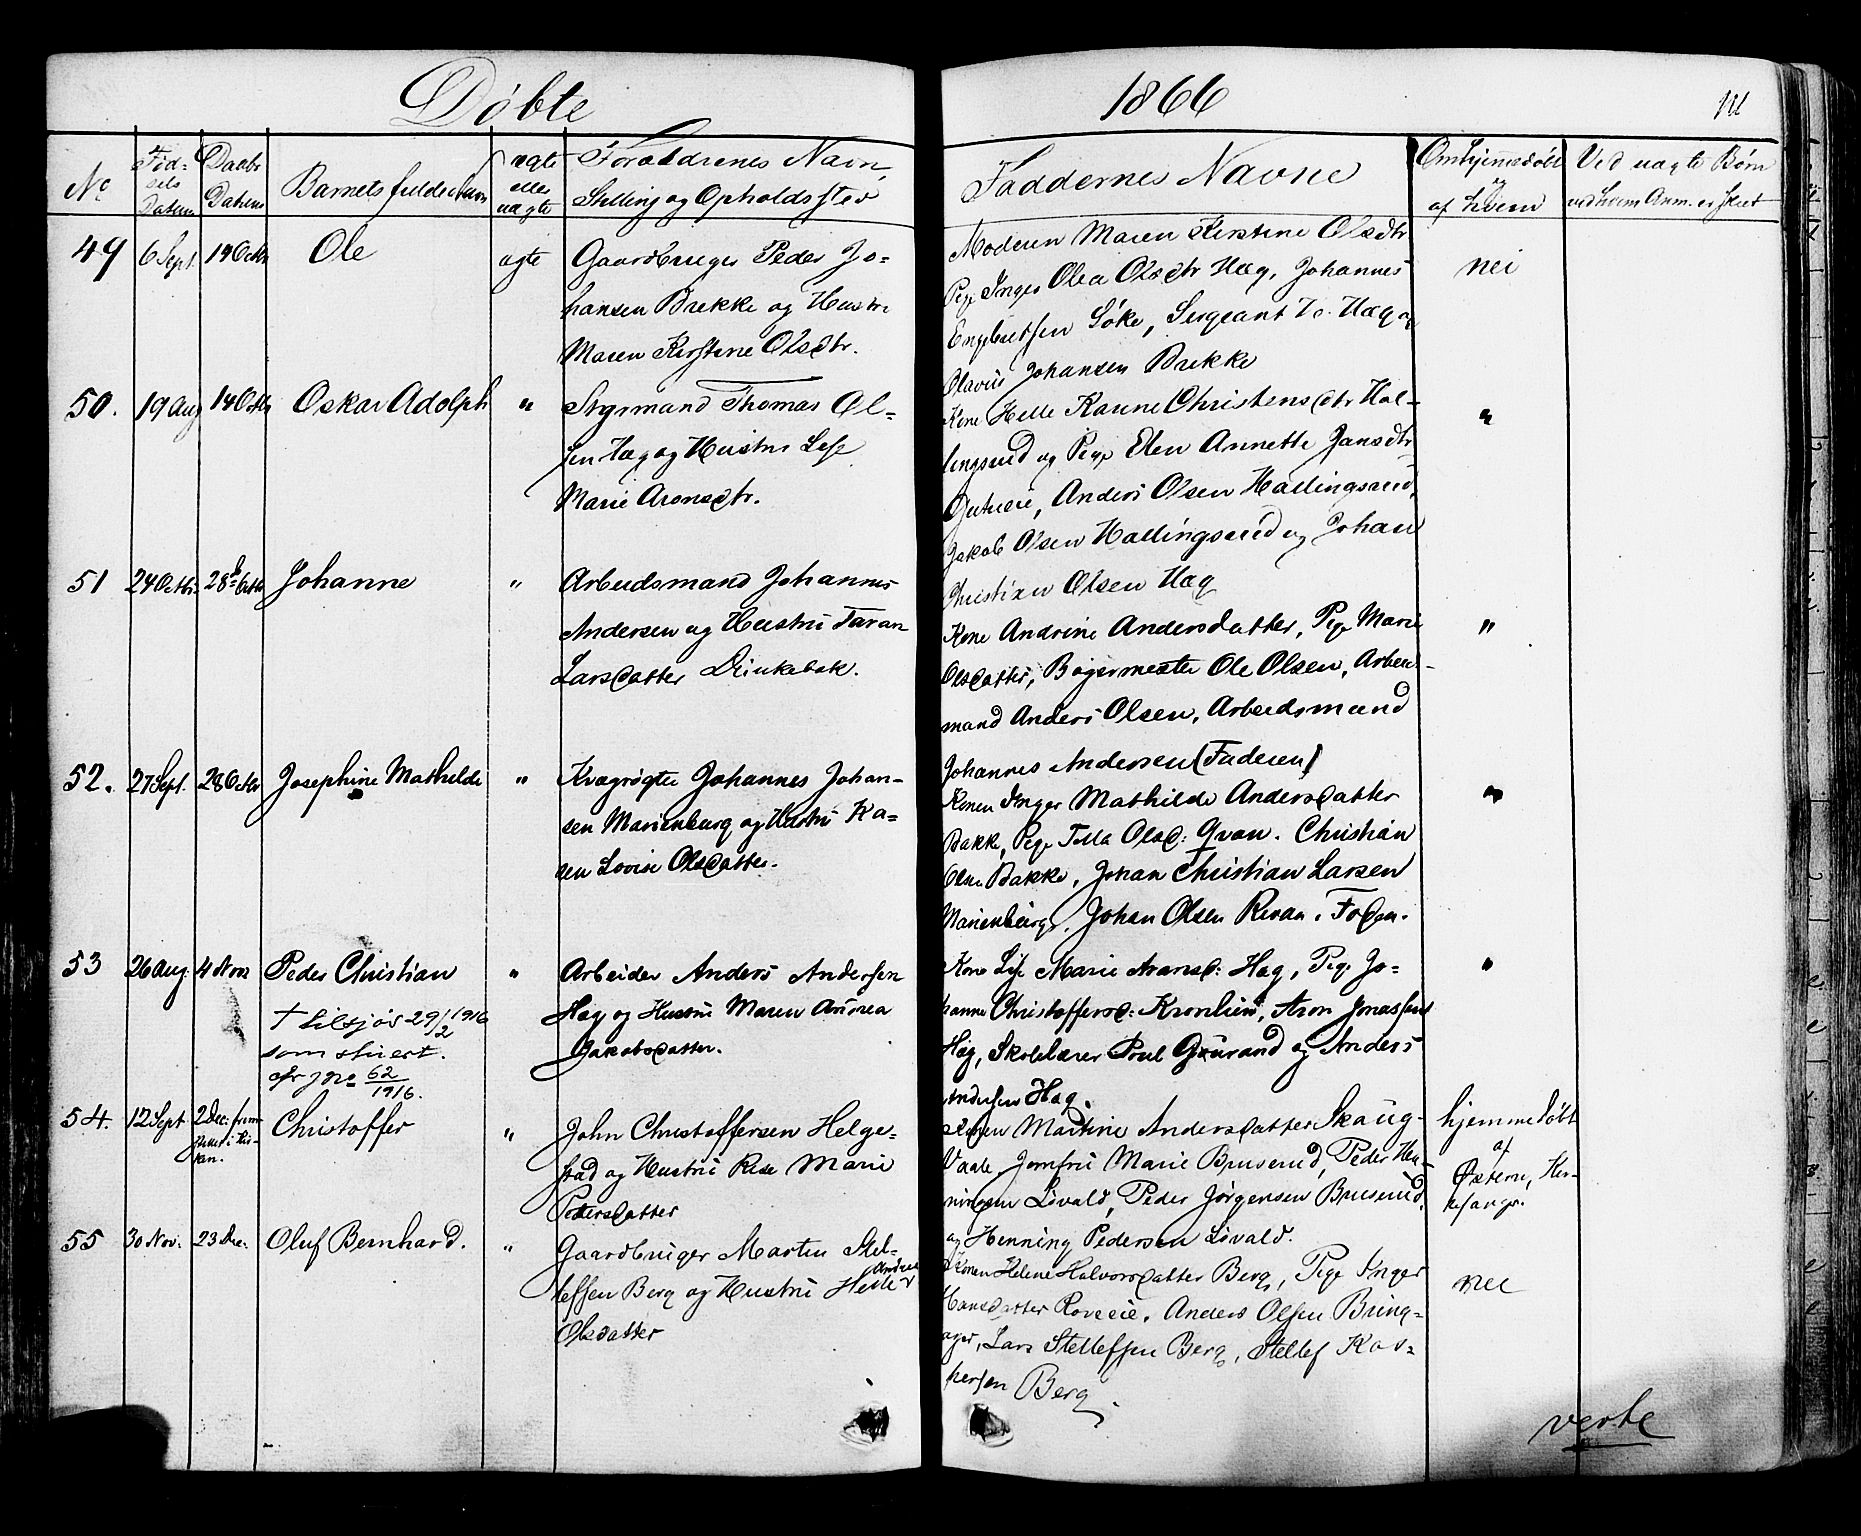 Døbte
1866
No
Fødsels Datum
Daabs Datum
Barnets fulde Navn
ægte eller uægte
Forældrenes Navn, Stilling og Opholdssted
Faddernes Navne
Om hjemmedøbt og af hvem
Ved uægte Børn
49
6 Sept.
14 Octbr
Ole
ægte
Gaardbruger Peder Jo-
hansen Brekke og Hustru
Maren Kirstine Olsdtr.
Moderen Maren Kirstine Olsdtr
Pige Inger Olea Olsdtr Hæg, Johannes
Engebretsen Søke, Sergeant Hæg og
Olavus Johansen Brekke
nei
50.
19 Aug
14 Octbr
Oskar Adolph
"
Styrmand Thomas Ol-
sen Hæg og Hustru Lise
Marie Aronsdtr.
Kone Helle Karine Christensdtr Hal-
lingsrud og Pige Elen Annette Jansdtr
Anders Olsen Hallingsrud,
Jakob Olsen Hallingsrud og Johan
Christian Olsen Hæg
"
51
24 Octbr.
28de Octbr
Johanne
"
Arbeidsmand Johannes
Andersen og Hustru Taran
Larsdatter
Kone Andrine Andersdatter, Pige Marie
Olsdatter, Bøgermester Ole Olsen, Arbeids-
mand Anders Olsen, Arbeidsmand
Johannes Andersen (Faderen)
"
52.
27 Sept.
28 Octbr
Josephine Mathilde
"
Kvægrøgter Johannes Johan-
sen Marienborg og Hustru Ka-
ren Lovise Olsdatter.
Konen Inger Mathilde Andersdatter
Bakke, Pige Tilla Olsd: Qvan. Christian
Olsen Bakke, Johan Christian Larsen
Marienborg, Johan Olsen Revaa.
"
53
26 Aug.
4 Novr
Peder Christian
† Lilsjøs 29/2 1916
som stuert.
cfr jno 62/1916.
"
Arbeider Anders Andersen
Hæg og Hustru Maren Andrea
Jakobsdatter.
Kone Lise Marie Aronsd: Hæg, Pige Jo-
hanne Christoffersd: Kronlien, Aron Jonassen
Hæg, Skolelærer Poul Gurand og Anders
Andersen Hæg.
"
54.
12 Sept
2 Dec. frem-
stillet i Kir-
ken.
Christoffer
"
John Christoffersen Helge-
stad og Hustru Marie
Pedersdatter
Konen Martine Andersdatter Skaug-
Vaale, Jomfru Marie Bruserud, Peder Hen-
ningsen Løvald, Peder Jørgensen Bruserud,
og Henning Pedersen Løvald.
hjemmedøbt
af
55
30 Nov.
23 Dec.
Oluf Bernhard.
"
Gaardbruger Morten Stel-
lefsen Berg og Hustru Helle Andrea
Olsdatter
Konen Helene Halvorsdatter Berg, Pige Inger
Hansdatter Roveeie, Anders Olsen Bring-
ager, Lars Stellefsen Berg, Stellef Kas-
persen Berg.
nei
verte